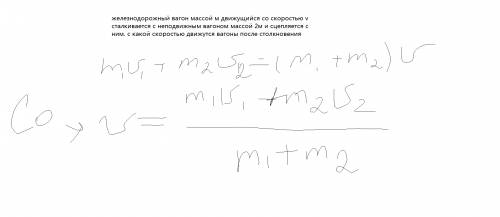 железнодорожный вагон массой м движущийся со скоростью v
сталкивается с неподвижным вагоном массой 2м и сцепляется с
ним. с какой скоростью движутся вагоны после столкновения
m₁υ₁ + m₂υ₂ = (m₁ + m₂) υ
Co → υ = m₁υ₁ + m₂υ₂
m₁ + m₂